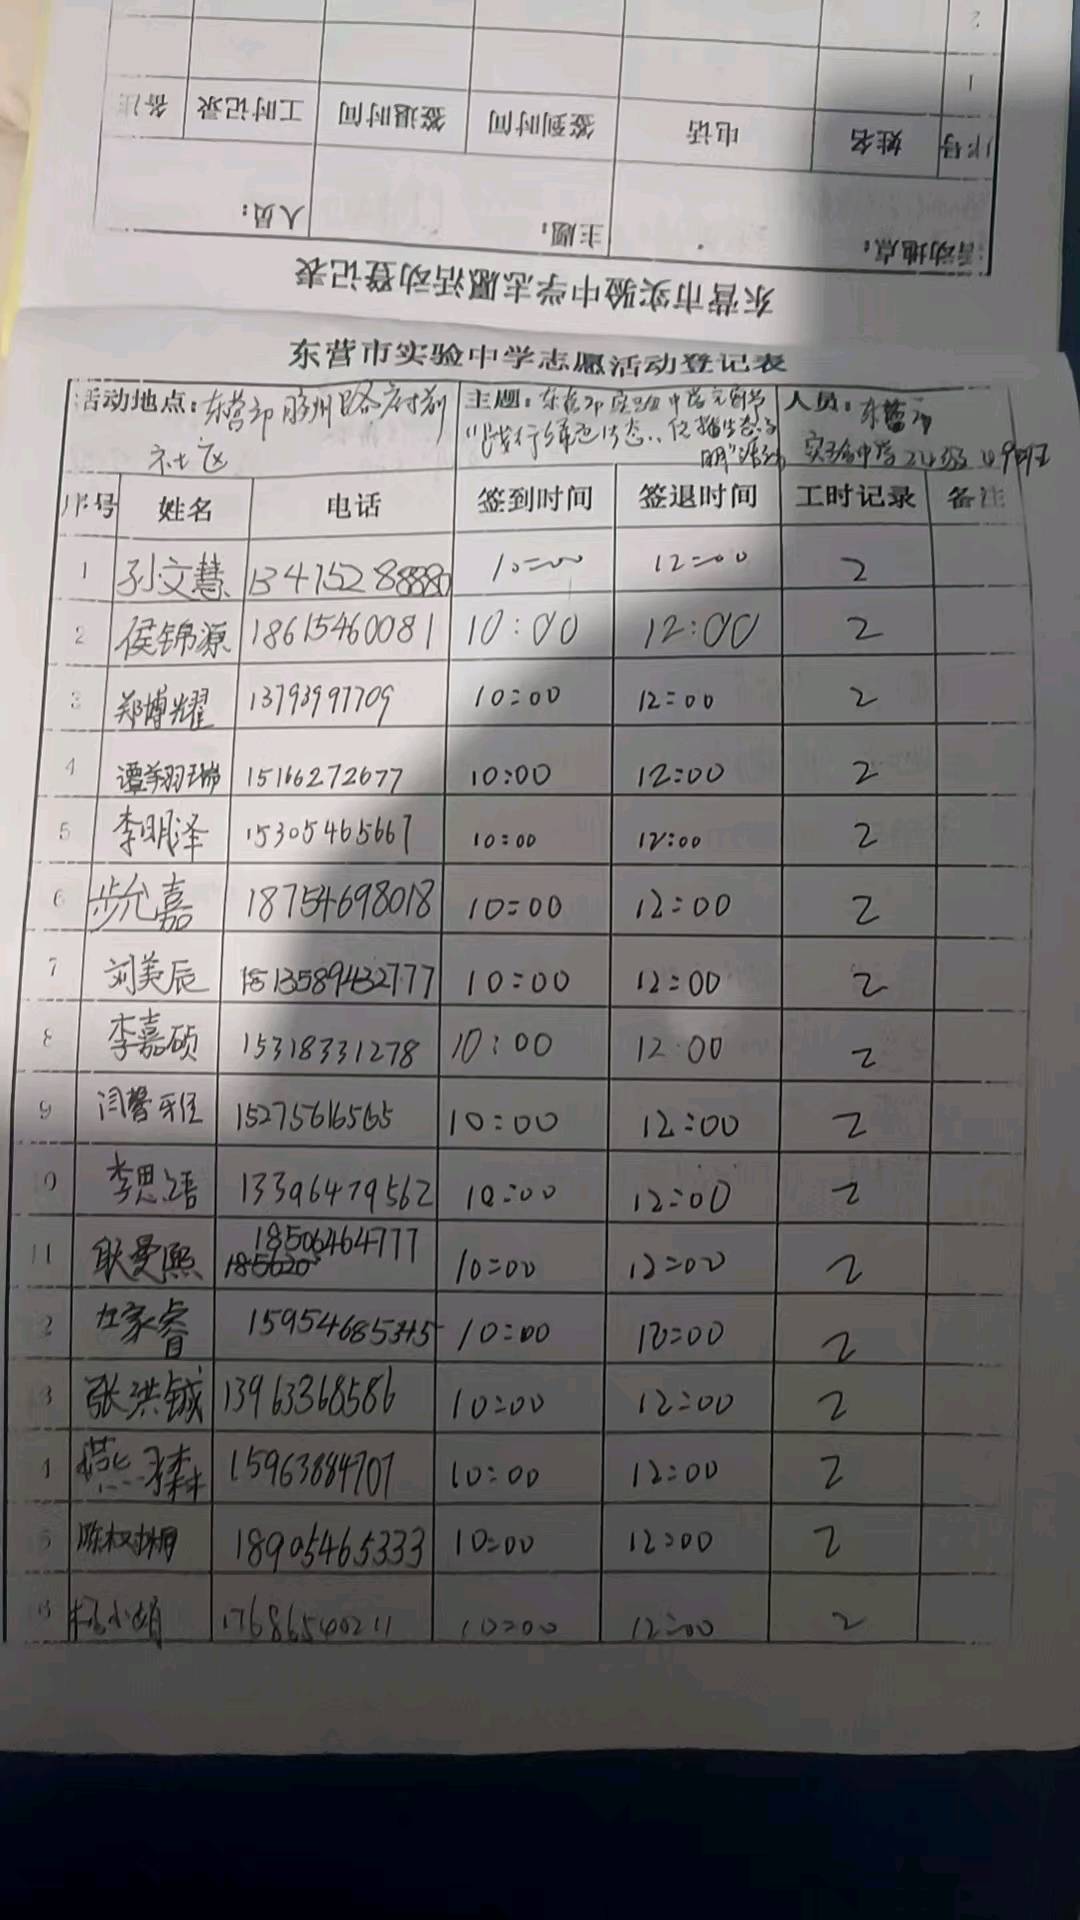 2
1
序号 姓名 电话 签到时间 签退时间 工时记录 备注
活动地点: 主题: 人员:
东营市实验中学志愿活动登记表
东营市实验中学志愿活动登记表
活动地点: 东营市胶州路 主题: 东营市实验中学 人员: 东营市
社区 践行 态 实验中学24级49班
明"活动
序号 姓名 电话 签到时间 签退时间 工时记录 备注
1 孙文慧 10:00 12:00 2
2 侯锦源 18615460081 10:00 12:00 2
3 郑博耀 13793997709 10:00 12:00 2
4 谭翔瑞 15166272677 10:00 12:00 2
5 李明泽 15305465667 10:00 12:00 2
6 步允嘉 18754698018 10:00 12:00 2
7 刘美辰 10:00 12:00 2
8 李嘉硕 15318331278 10:00 12:00 2
9 闫馨雅 15275616565 10:00 12:00 2
10 李思语 13396479562 10:00 12:00 2
11 耿曼熙 18506464777 10:00 12:00 2
2 左家睿 10:00 12:00 2
3 张洪铖 13963368586 10:00 12:00 2
4 燕 15963884707 10:00 12:00 2
5 陈权 18905465333 10:00 12:00 2
6 杨小娟 17686540211 10:00 12:00 2